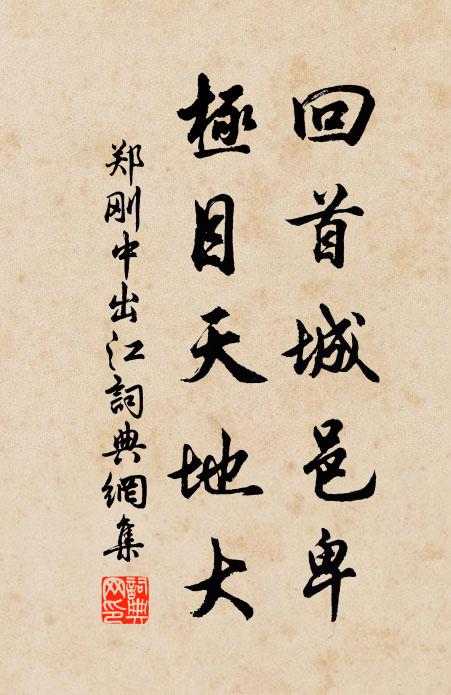 回首城邑卑
極目天地大
郑刚中出江詞典網集
詞典网印